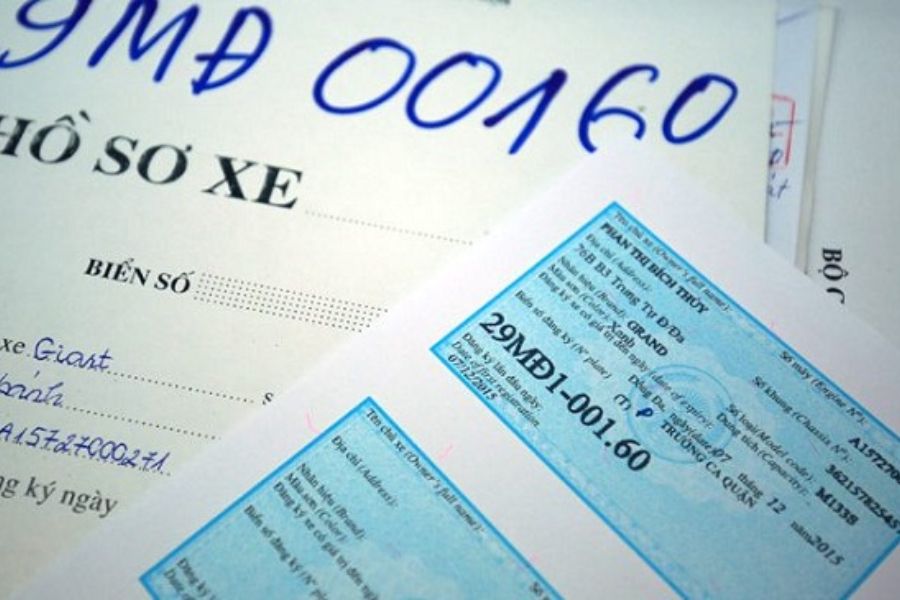 9MĐ 00160
HỒ SƠ XE
BIỂN SỐ
xe Giant
bánh
A15727000271
ng ký ngày
BỘ
Tên chủ xe (Owner's full name):
PHAN THỊ BÍCH THỦY
Địa chỉ (Address):
76B B3 Trung Tự Đ/Đa
Nhãn hiệu (Brand): GRAND
Màu sơn (Color): Xanh
Đăng ký xe có giá trị đến ngày (date of expiry):
Biển số đăng ký (N° plate)
29MĐ1-001.60
Đăng ký lần đầu ngày:
Date of first registration:
07/12/2015
Số máy (Engine N°):
A1572700
Số khung (Chassis N°):
36215782545
Số loại (Model code): M133B
Dung tích (Capacity):
Đống Đa, ngày (date) 07 tháng 12 năm 2015
(T)
TRƯỞNG CA QUẬN
Tên chủ xe (Owner's full name):
Địa chỉ (Address):
Nhãn hiệu (Brand):
Màu sơn (Color):
Đăng ký xe có giá trị đến
Biển số đăng ký (N° plate)
Đăng ký
Số